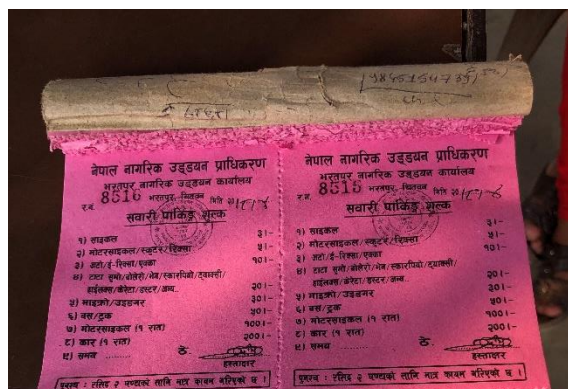 नेपाल नागरिक उड्डयन प्राधिकरण
भरतपुर नागरिक उड्डयन कार्यालय
र.नं. 8516 भरतपुर, चितवन मिति २०
सवारी पार्किङ्ग शुल्क
१) साइकल ३।-
२) मोटरसाइकल/स्कुटर/रिक्सा ५।-
३) अटो/ई-रिक्सा/एक्का १०।-
४) टाटा सुमो/बोलेरो/भेन/स्कारपियो/ट्याक्सी/
हाईलक्स/क्रेटा/डस्टर/अन्य..
२०।-
५) माइक्रो/उइङगर ३०।-
६) बस/ट्रक ५०।-
७) मोटरसाइकल (१ रात) १००।-
८) कार (१ रात) २००।-
९) समय
हस्ताक्षर
२ घण्टाको लागि मात्र कायम गरिएको छ ।
नेपाल नागरिक उड्डयन प्राधिकरण
भरतपुर नागरिक उड्डयन कार्यालय
र.नं. 8515 भरतपुर, चितवन मिति २०
सवारी पार्किङ्ग शुल्क
१) साइकल ३।-
२) मोटरसाइकल/स्कुटर/रिक्सा ५।-
३) अटो/ई-रिक्सा/एक्का १०।-
४) टाटा सुमो/बोलेरो/भेन/स्कारपियो/ट्याक्सी/
हाईलक्स/क्रेटा/डस्टर/अन्य..
२०।-
५) माइक्रो/उइङगर ३०।-
६) बस/ट्रक ५०।-
७) मोटरसाइकल (१ रात) १००।-
८) कार (१ रात) २००।-
९) समय
हस्ताक्षर
२ घण्टाको लागि मात्र कायम गरिएको छ ।